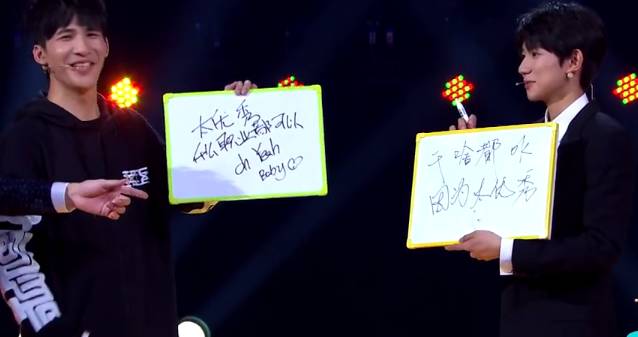 太优秀
什么职业都可以
oh Yeah
Baby♡
干啥都 OK
因为太优秀